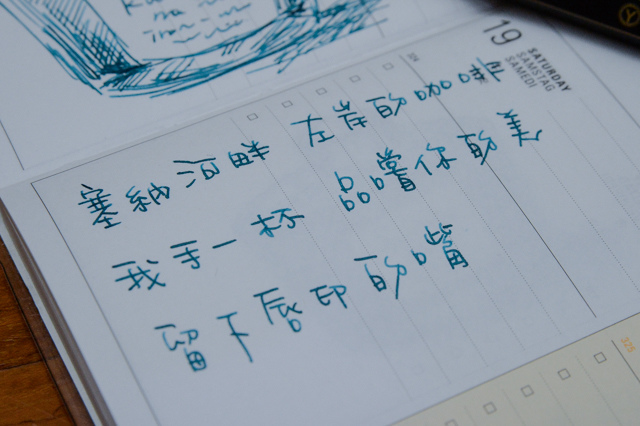 19
SATURDAY
SAMSTAG
SAMEDI
324
塞納河畔 左岸的咖啡
我手一杯 品嚐你的美
留下唇印的嘴
325